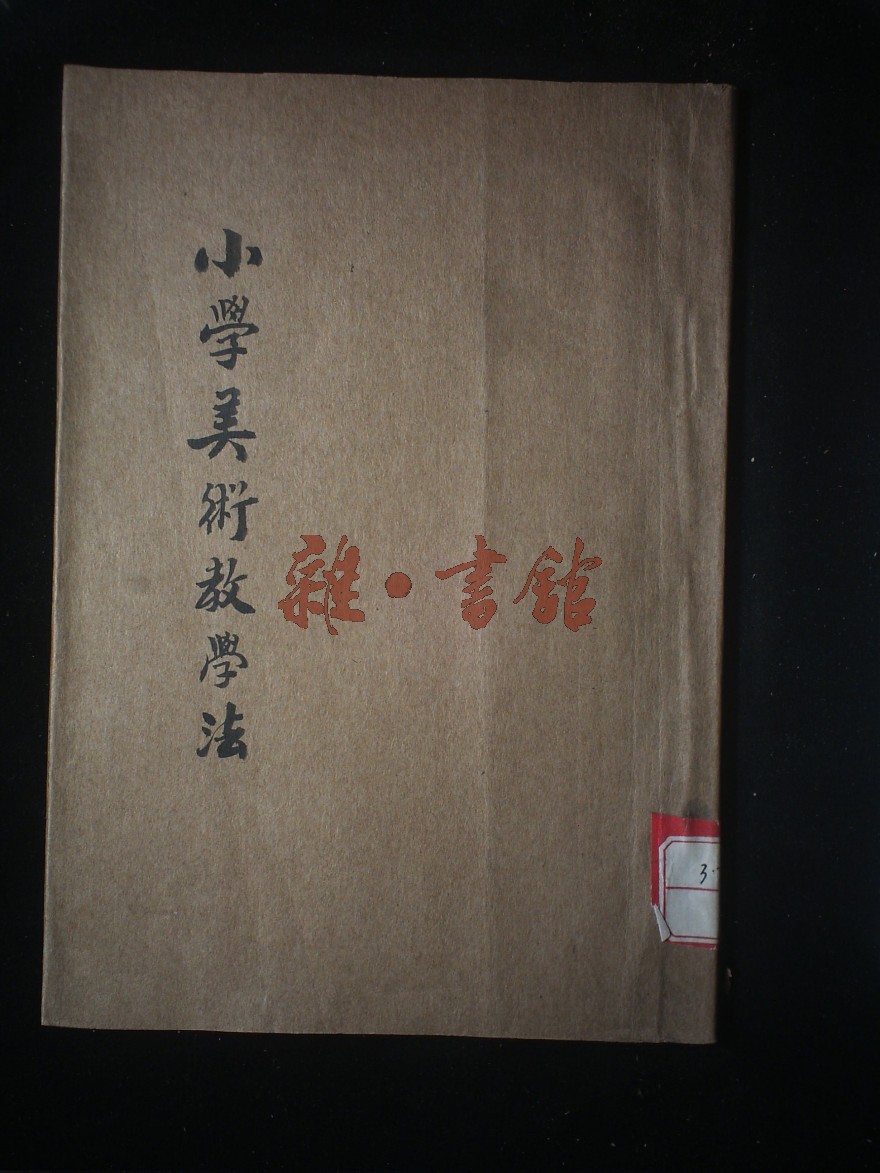 小學美術教學法
雜·書館
3